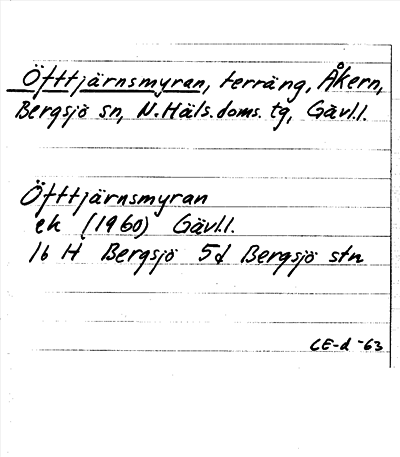 Öfttjärnsmyran, terräng, Åkern,
Bergsjö sn, N.Häls.doms. tg, Gävl.l.
Öfttjärnsmyran
ek (1960) Gävl.l.
16 H Bergsjö 5d Bergsjö stn
CE-d -63